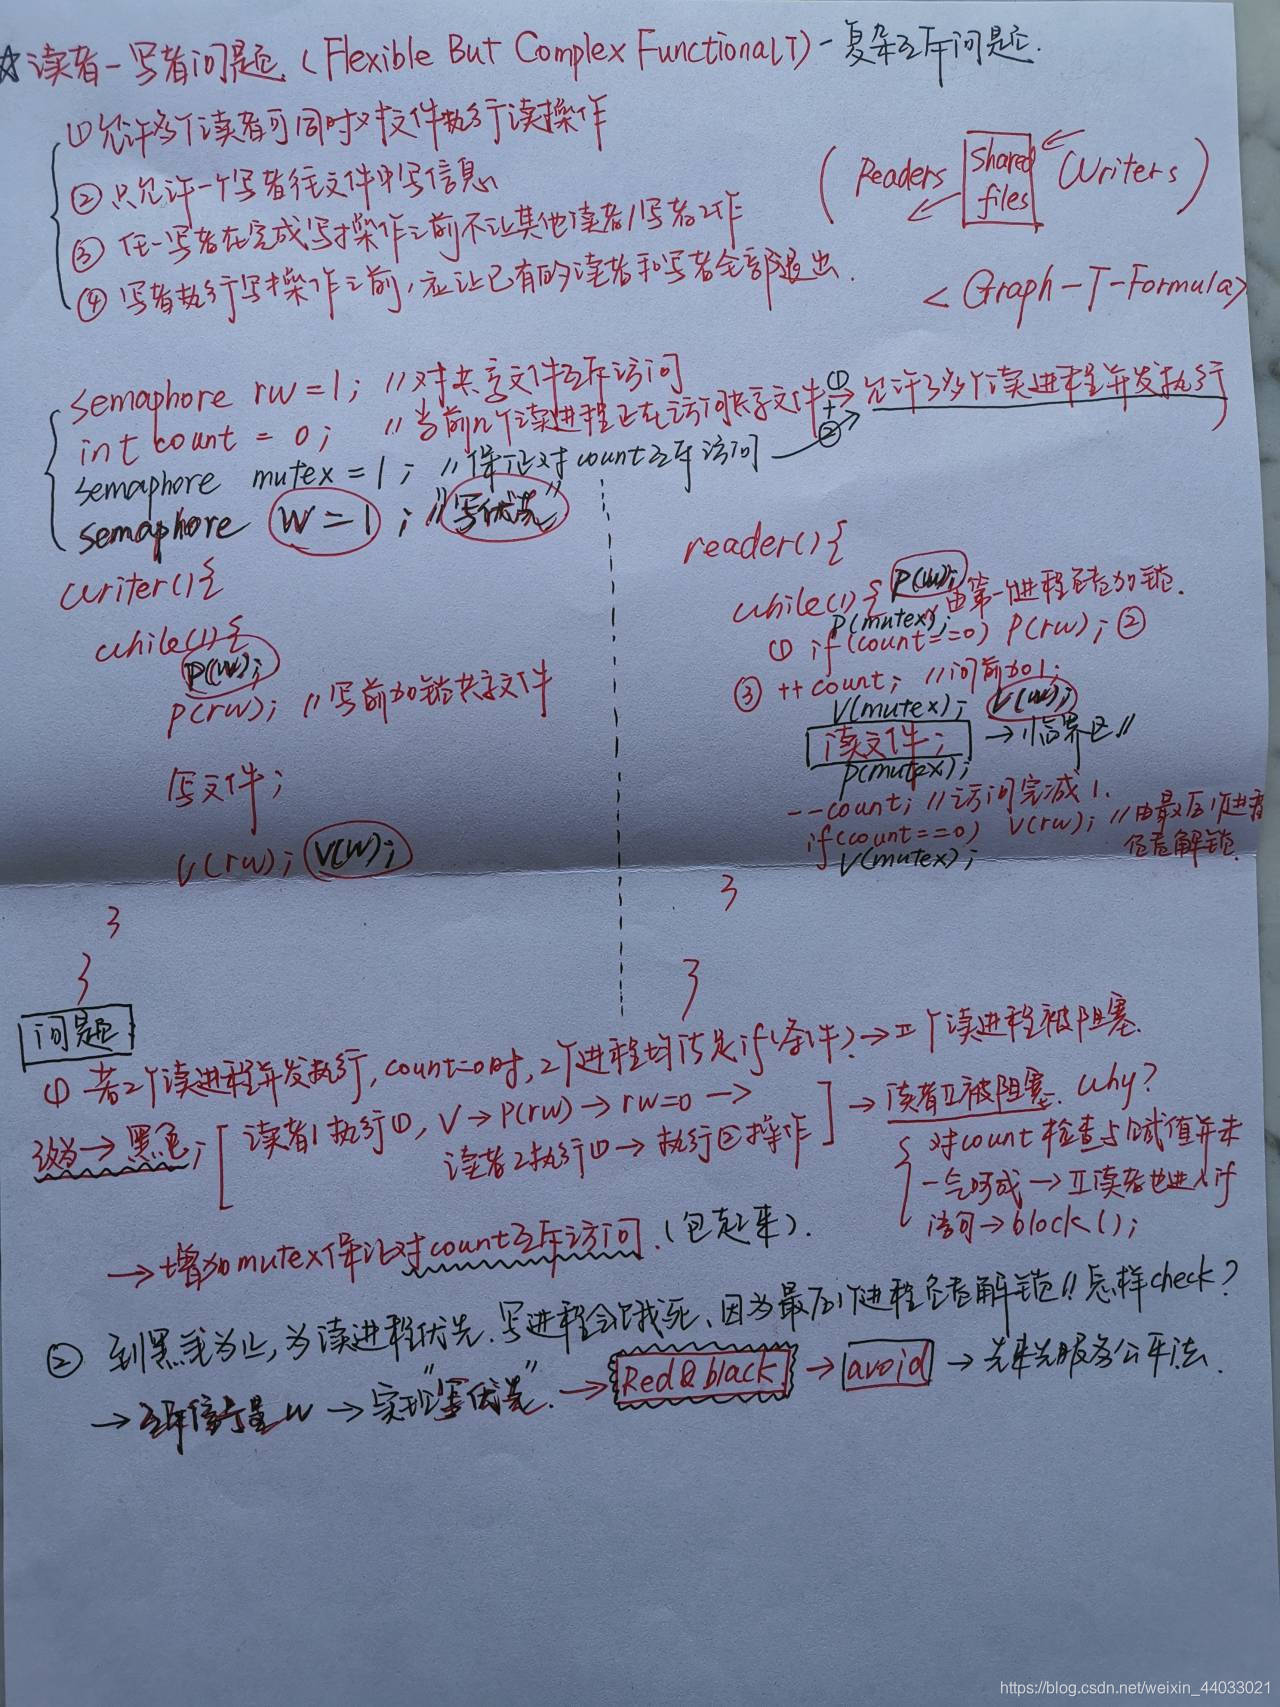 ☆读者-写者问题 (Flexible But Complex Functional T) - 复杂互斥问题.
① 允许多个读者可同时对文件执行读操作
② 只允许一个写者往文件中写信息
③ 任一写者在完成写操作之前不让其他读者/写者工作
④ 写者执行写操作之前, 应让已有的读者和写者全部退出.
(Readers Shared files Writers)
< Graph-T-Formula>
semaphore rw=1; //对共享文件互斥访问
int count = 0; //当前几个读进程正在访问共享文件 ①+② → 允许多个读进程并发执行
semaphore mutex=1; //保证对count互斥访问
semaphore w=1; //"写优先"
writer(){
while(1){
P(w);
P(rw); //写前加锁共享文件
写文件;
V(rw); V(w);
}
}
reader(){
while(1){ P(w);
P(mutex); 由第一个进程负责加锁.
① if(count==0) P(rw); ②
③ ++count; //访前加1;
V(mutex); V(w);
读文件; → 临界区//
P(mutex);
--count; //访问完减1.
if(count==0) V(rw); //由最后1个进程
V(mutex); 负责解锁.
}
}
问题
① 若2个读进程并发执行, count=0时, 2个进程均满足if(条件). → II个读进程被阻塞.
改为→黑色; [读者1执行①, V → P(rw) → rw=0 →
读者2执行① → 执行②操作] → 读者II被阻塞. Why?
对count检查与赋值并未
一气呵成 → II读者也进入if
语句 → block();
→ 增加mutex保证对count互斥访问.(包起来).
② 到黑线为止, 为读进程优先. 写进程会饿死、因为最后1个进程负责解锁!! 怎样check?
→ 互斥信号量w → 实现"写优先". → Red&black → avoid → 先来先服务公平法.
https://blog.csdn.net/weixin_44033021